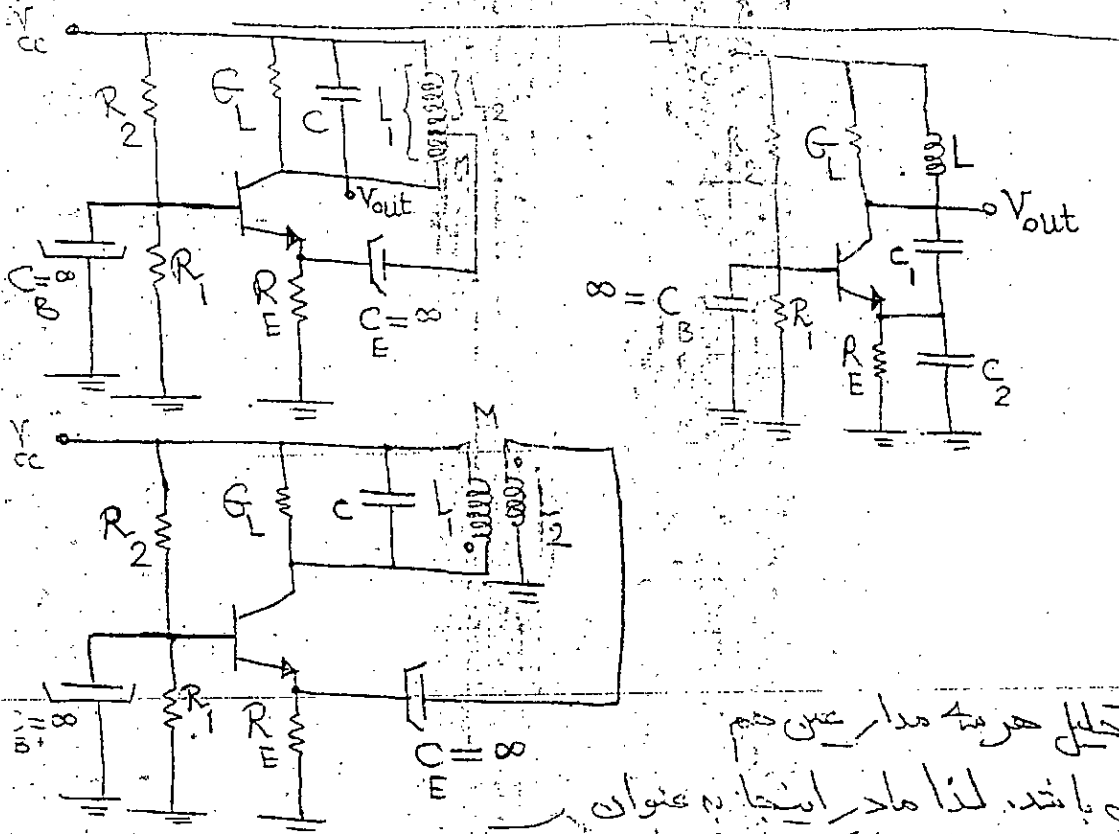 V
CC
R
2
G
L
C
L
1
M
Vout
R
1
R
E
C = ∞
B
C = ∞
E
R
1
G
L
L
Vout
C
1
∞ = C
B
R
E
C
2
V
CC
M
R
2
G
L
C
L
1
2
R
1
R
E
= ∞
B
C = ∞
E
تحلیل هر سه مدار عین هم
باشد. لذا ما در اینجا به عنوان